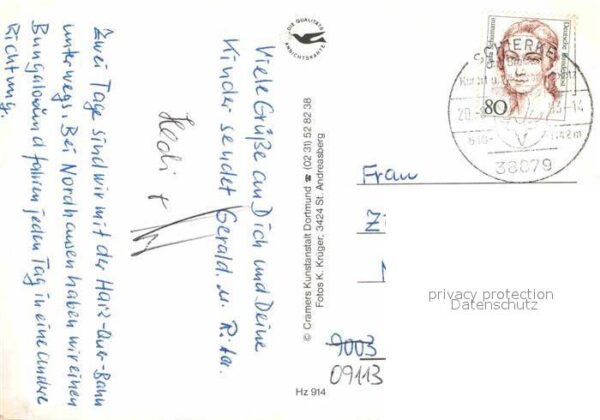 Zwei Tage sind wir mit der Harz-Quer-Bahn
unterwegs. Bei Nordhausen haben wir einen
Bungalow und fahren jeden Tag in eine andere
Richtung.
Hedi +
Viele Grüße an Dich und Deine
Kinder sendet Gerald u. Rita.
DIE QUALITÄTS
ANSICHTSKARTE
© Cramers Kunstanstalt Dortmund ☎ (02 31) 52 82 38
Fotos K. Krüger, 3424 St. Andreasberg
Hz 914
Clara Schumann
Deutsche Bundespost
80
SCHIERKE
38879
Frau
privacy protection
Datenschutz
9003
09113